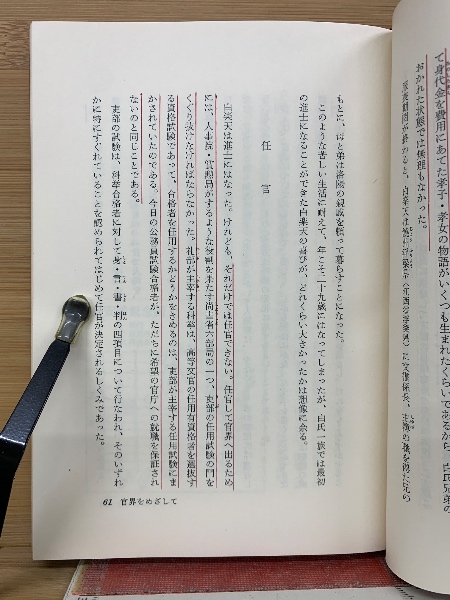 て身代金を費用にあてた孝子・孝女の物語がいくつも生まれたくらいであるから、白氏兄弟の
おかれた状態では無理もなかった。
もとに、母と弟は洛陽の親戚を頼って暮らすことになった。
このような苦しい生活に耐えて、年こそ二十九歳にはなってしまったが、白氏一族では最初
の進士になることができた白楽天の喜びが、どれくらい大きかったかは想像に余る。
任官
白楽天は進士にはなった。けれども、それだけでは任官できない。任官して官界へ出るため
には、人事院・賞勲局がするような役割を果たす尚書省六部局の一つ、吏部の任用試験の門を
くぐり抜けなければならなかった。礼部が主宰する科挙は、高等文官の任用有資格者を選抜す
る資格試験であって、合格者を任用するかどうかをきめるのは、吏部が主宰する任用試験にま
かされていたのである。今日の公務員試験合格者が、ただちに希望の官庁への就職を保証され
ないのと同じことである。
吏部の試験は、科挙合格者に対して身・言・書・判の四項目について行なわれ、そのいずれ
かに特にすぐれていることを認められてはじめて任官が決定されるしくみであった。
61 官界をめざして